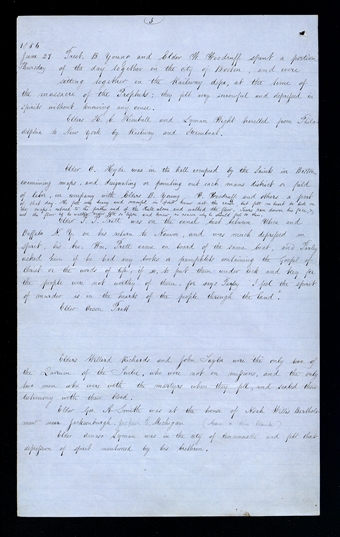 5
1844
June 27 Prest. B. Young and Elder W. Woodruff spent a portion
Thursday of the day together in the city of Boston, and were
sitting together in the Railway depo, at the time of
the massacre of the Prophets; they felt very sorrowful and depressed in
spirits without knowing any cause.
Elders H. C. Kimball and Lyman Wight travelled from Phila-
delphia to New York by Railway and Steamboat.
Elder O. Hyde was in the hall occupied by the Saints in Boston,
examining maps, and designating or pointing out each mans district or field
of labor, in company with Elders B. Young W. Woodruff and others a part
of that day. He felt very heavy and sorrowful in spirit
Elder P. P. Pratt was on the canal boat between Utica and
Buffalo N. Y. on his return to Nauvoo, and was much depressed in
spirit; his bro. Wm. Pratt came on board of the same boat, and Parley
asked him if he had any books or pamphlets containing the Gospel of
Christ or the words of life, if so, to put them under lock and key for
the people are not worthy of them, for says Parley I feel the spirit
of murder is in the hearts of the people through the land.
Elder Orson Pratt
Elders Willard Richards and John Taylor were the only two of
the Quorum of the Twelve, who were not on missions, and the only
two men who were with the martyrs when they fell, and sealed their
testimony with their blood.
Elder Geo. A. Smith was at the house of Noah Willis Bartholo-
mew near Jacksonburgh, Michigan
Elder Amasa Lyman was in the city of Cincinnati and felt that
depression of spirit mentioned by his brethren.